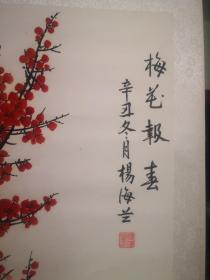 梅花報春
辛丑冬月楊海蘭